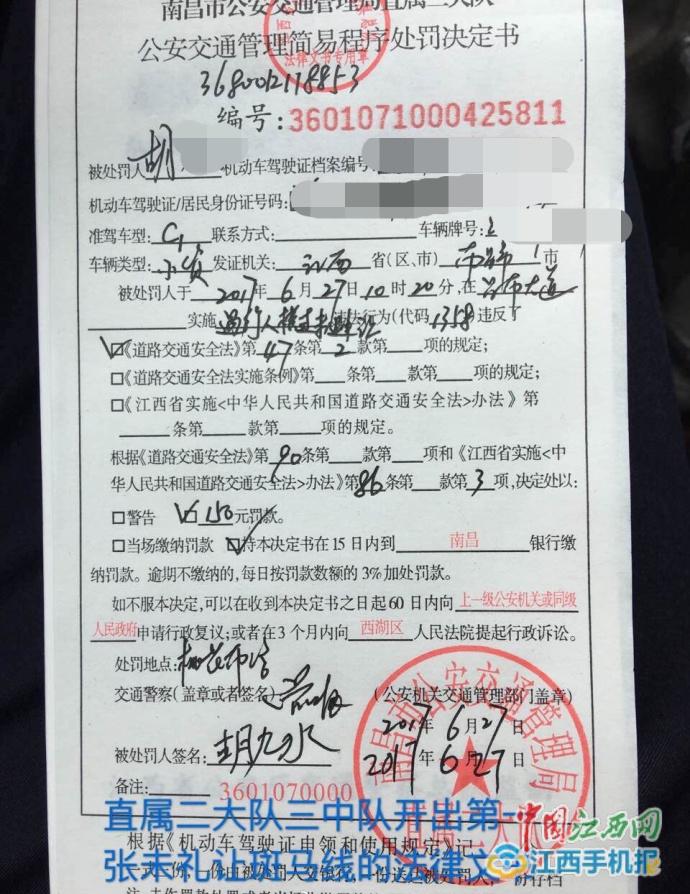 南昌市公安交通管理局直属二大队
公安交通管理简易程序处罚决定书
法律文书专用章
3680012118853
编号:3601071000425811
被处罚人 胡 机动车驾驶证档案编号:
机动车驾驶证/居民身份证号码:
准驾车型:C1 联系方式: 车辆牌号:
车辆类型:小 发证机关:江西 省(区、市) 南昌 市
被处罚人于 2017年6月27日10时20分,在
实施 遇行人横过未避让 违法行为(代码 1358 违反了
☑《道路交通安全法》第47条第2款第 项的规定;
□《道路交通安全法实施条例》第 条第 款第 项的规定;
□《江西省实施<中华人民共和国道路交通安全法>办法》第
条第 款第 项的规定。
根据《道路交通安全法》第90条第 款第 项和《江西省实施<中
华人民共和国道路交通安全法>办法》第86条第 款第3项,决定处以:
□警告 ☑150元罚款。
□当场缴纳罚款 ☑持本决定书在15日内到 南昌 银行缴
纳罚款。逾期不缴纳的,每日按罚款数额的3%加处罚款。
如不服本决定,可以在收到本决定书之日起60日内向 上一级公安机关或同级
人民政府 申请行政复议;或者在3个月内向 西湖区 人民法院提起行政诉讼。
处罚地点:
交通警察(盖章或者签名) (公安机关交通管理部门盖章)
2017年6月27日
被处罚人签名:胡九水 2017年6月27日
南昌市公安交通管理局
备注: 3601070000
直属二大队三中队开出第一
中国江西网
根据《机动车驾驶证申领和使用规定》记
张未礼让斑马线的法律文
江西手机报